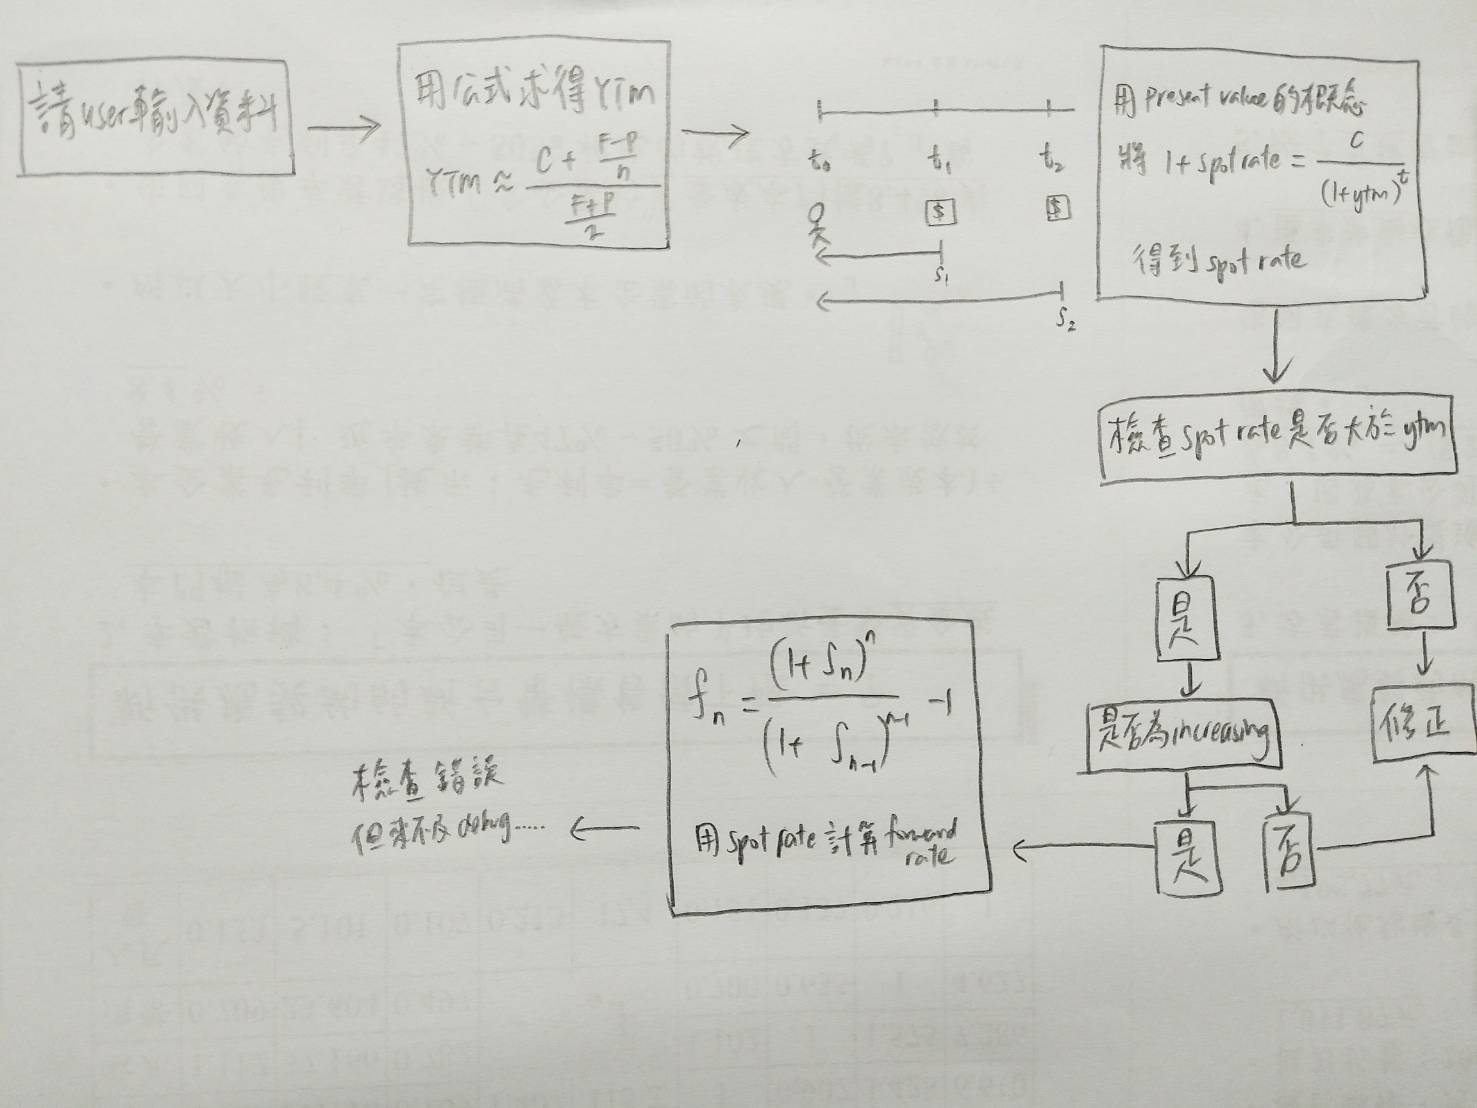 請user輸入資料
用公式求得YTM
YTM ≈ (C + (F-P)/n) / ((F+P)/2)
t₀ t₁ t₂
$ $
S₁
S₂
用 present value的概念
將 1+spot rate = C/(1+ytm)^t
得到 spot rate
檢查spot rate是否大於ytm
是 否
是否為increasing 修正
是 否
fₙ = (1+Sₙ)^n / (1+Sₙ₋₁)^(n-1) -1
用spot rate計算forward
rate
檢查錯誤
但來不及debug.....